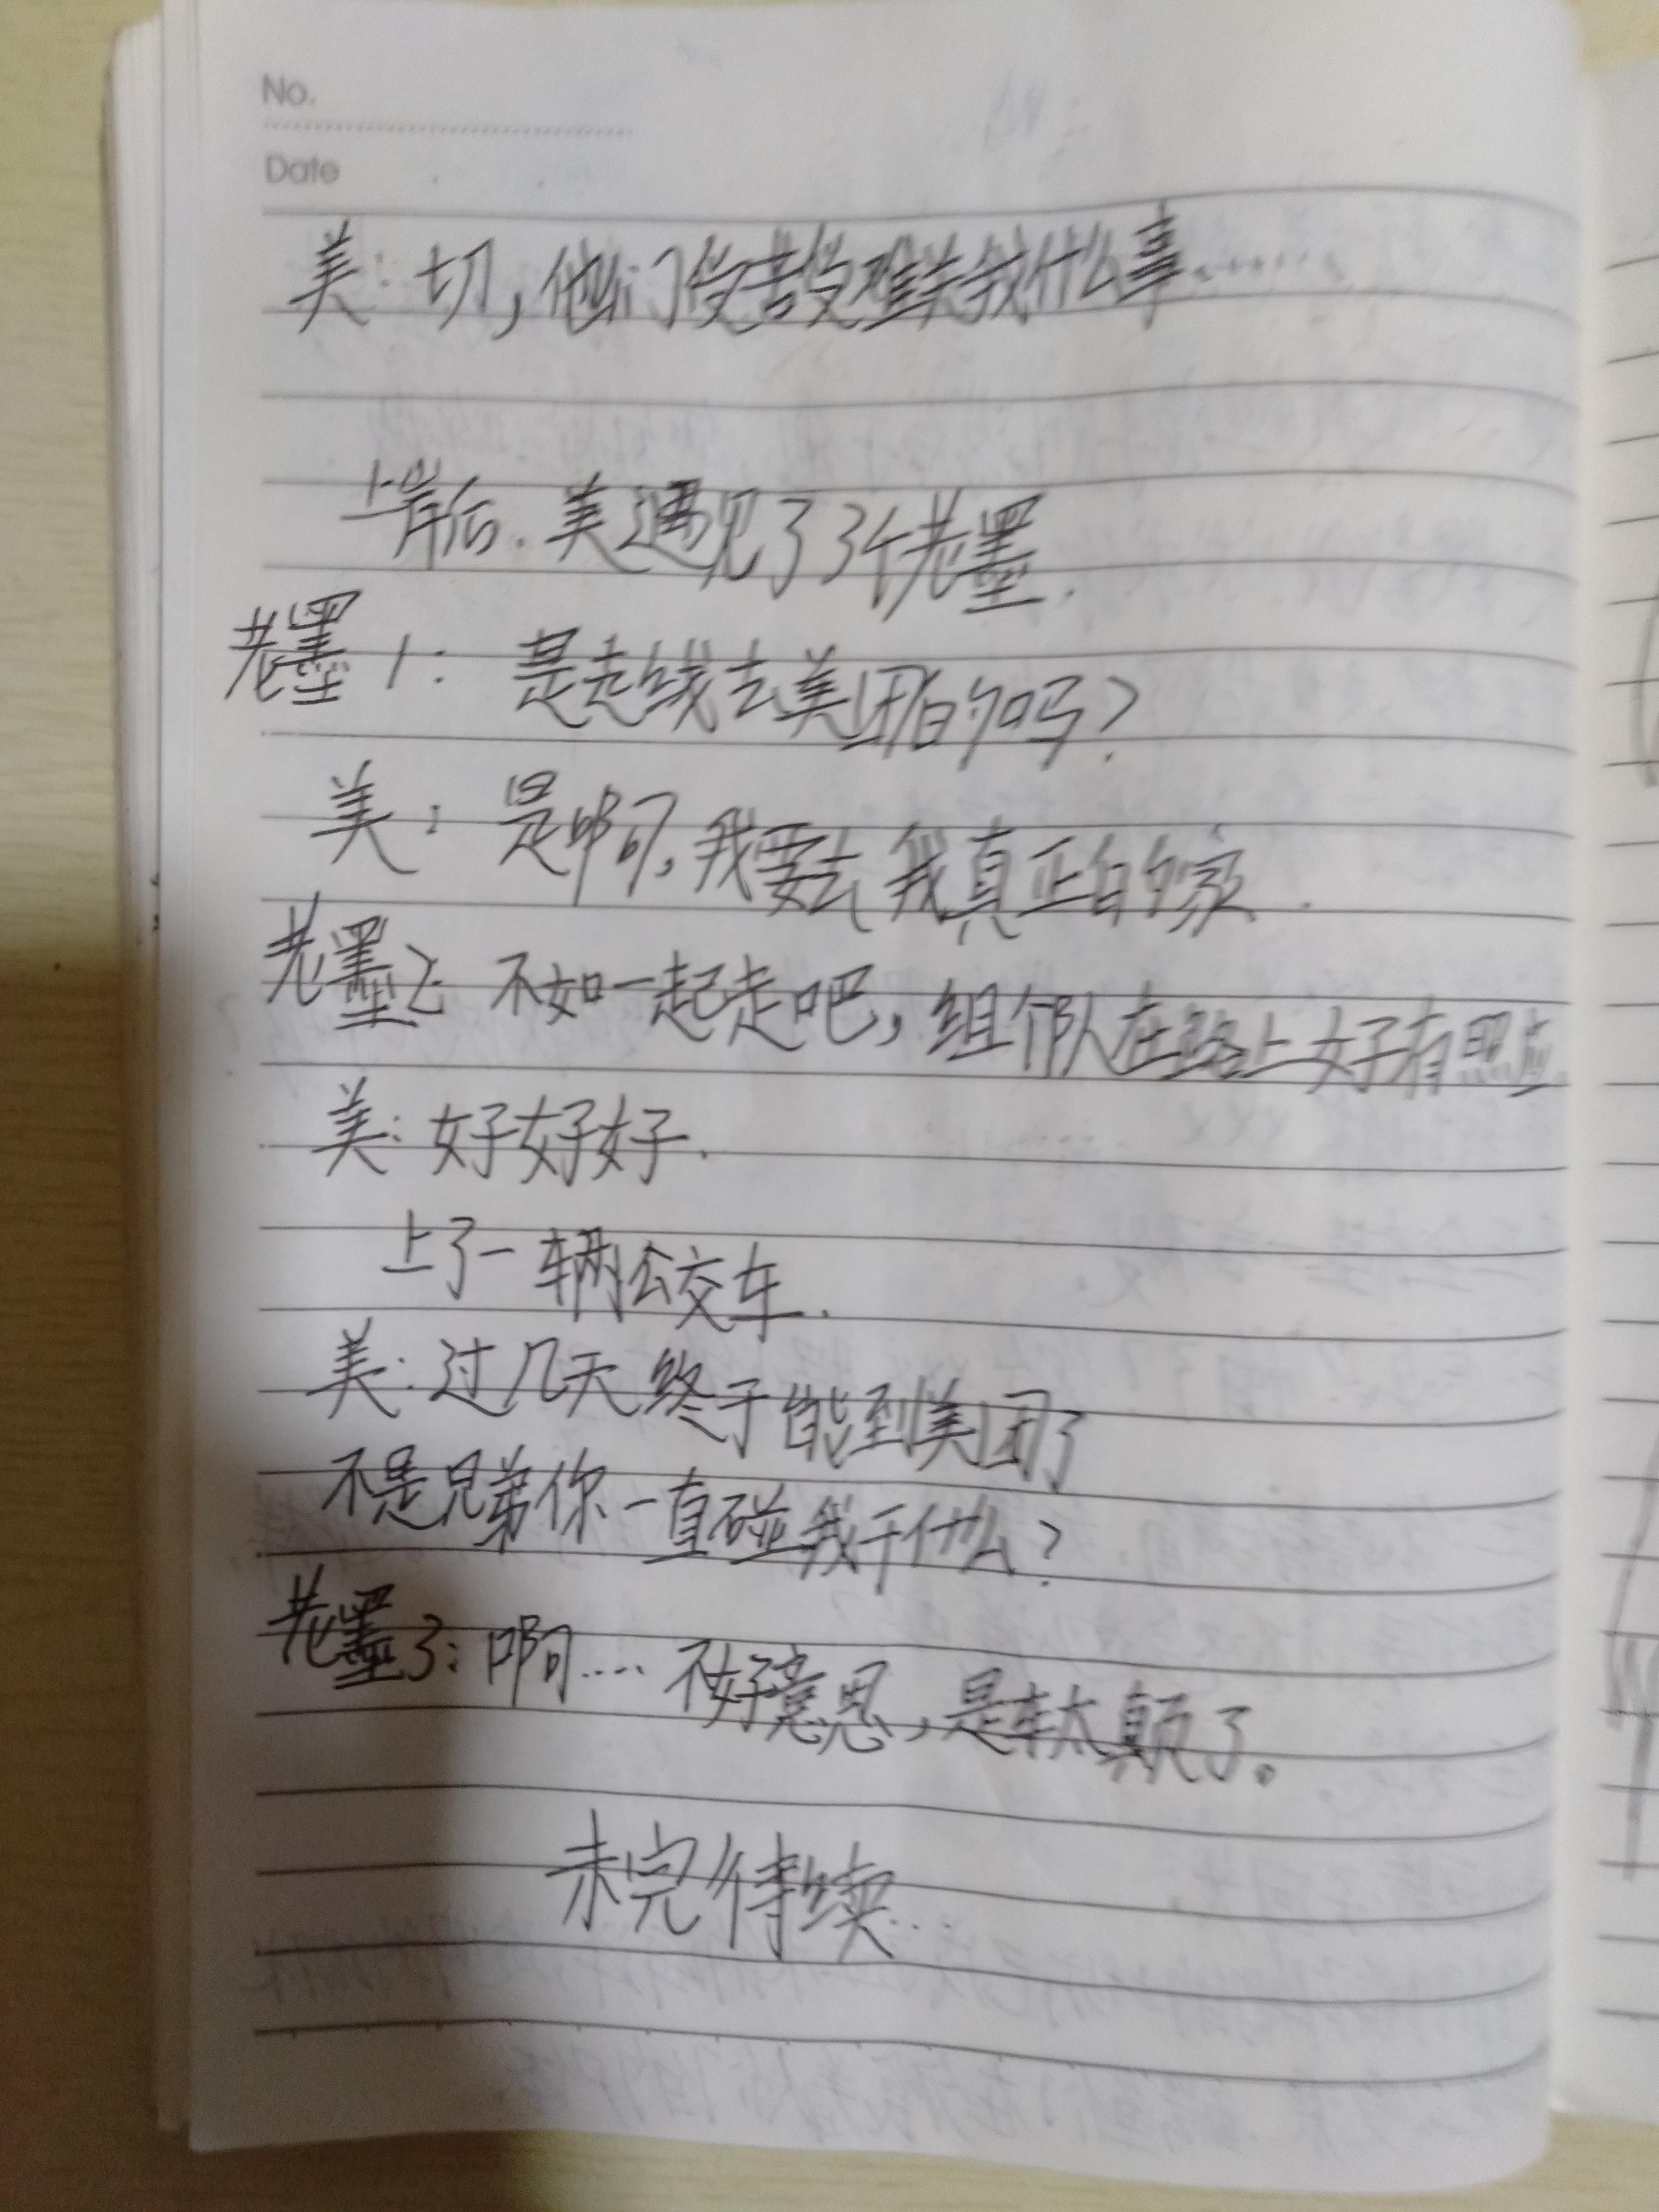 No.
Date
美：切，他们受苦受难关我什么事......
上岸后.美遇见了3个老墨.
老墨1：是走线去美团的吗？
美：是啊，我要去我真正的家.
老墨2：不如一起走吧，组个队在路上好有照应
美：好好好.
上了一辆公交车.
美：过几天终于能到美团了
不是兄弟你一直碰我干什么？
老墨3：啊....不好意思，是车太颠了。
未完待续...